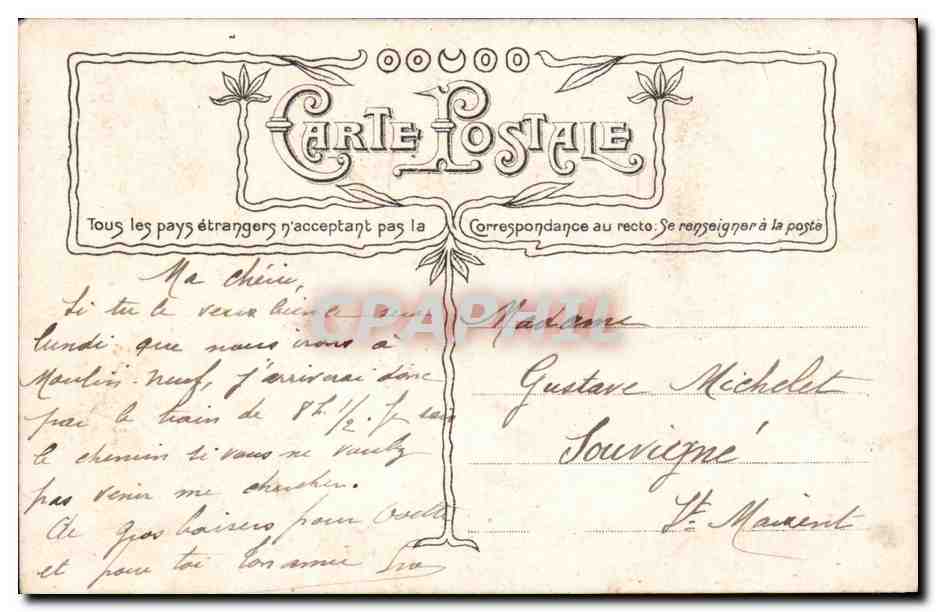 CARTE POSTALE
Tous les pays étrangers n'acceptant pas la Correspondance au recto: Se renseigner à la poste
CPAPHIL
Ma chérie,
Si tu le veux bien c
lundi que nous irons à
Moulin-neuf, j'arriverai donc
par le train de 8h 1/2. Je sais
le chemin si vous ne voulez
pas venir me chercher.
De gros baisers pour Odette
et pour toi Ton amie
Madame
Gustave Michelet
Souvigné
St Maixent